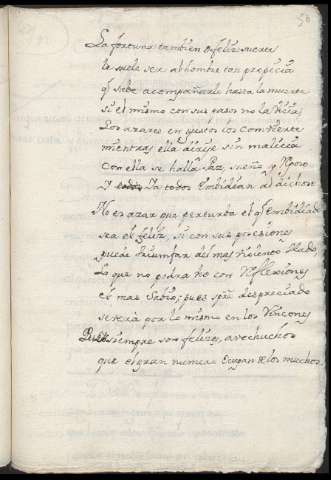 58
La fortuna tambien o feliz suerte
le suele ser al hombre tan propicia
q̃ sabe acompañarle hasta la muerte
si el mismo con sus vicios no la vicia
Los azares en gustos los combierte
mientras ella dirije sin malicia
Con ella se halla Paz, sueño y reposo
Y todos embidian al dichoso
No es azar que perturba el q̃ embidiado
sea el feliz, si con sus
puede triumfar del mas violento Hado,
Lo que no podra no con reflexiones
es mas Sabio; pues spre despreciado
se verà por lo mismo en los rincones
Pues siempre son felizes, avechuchos
que el gran numero de los muchos